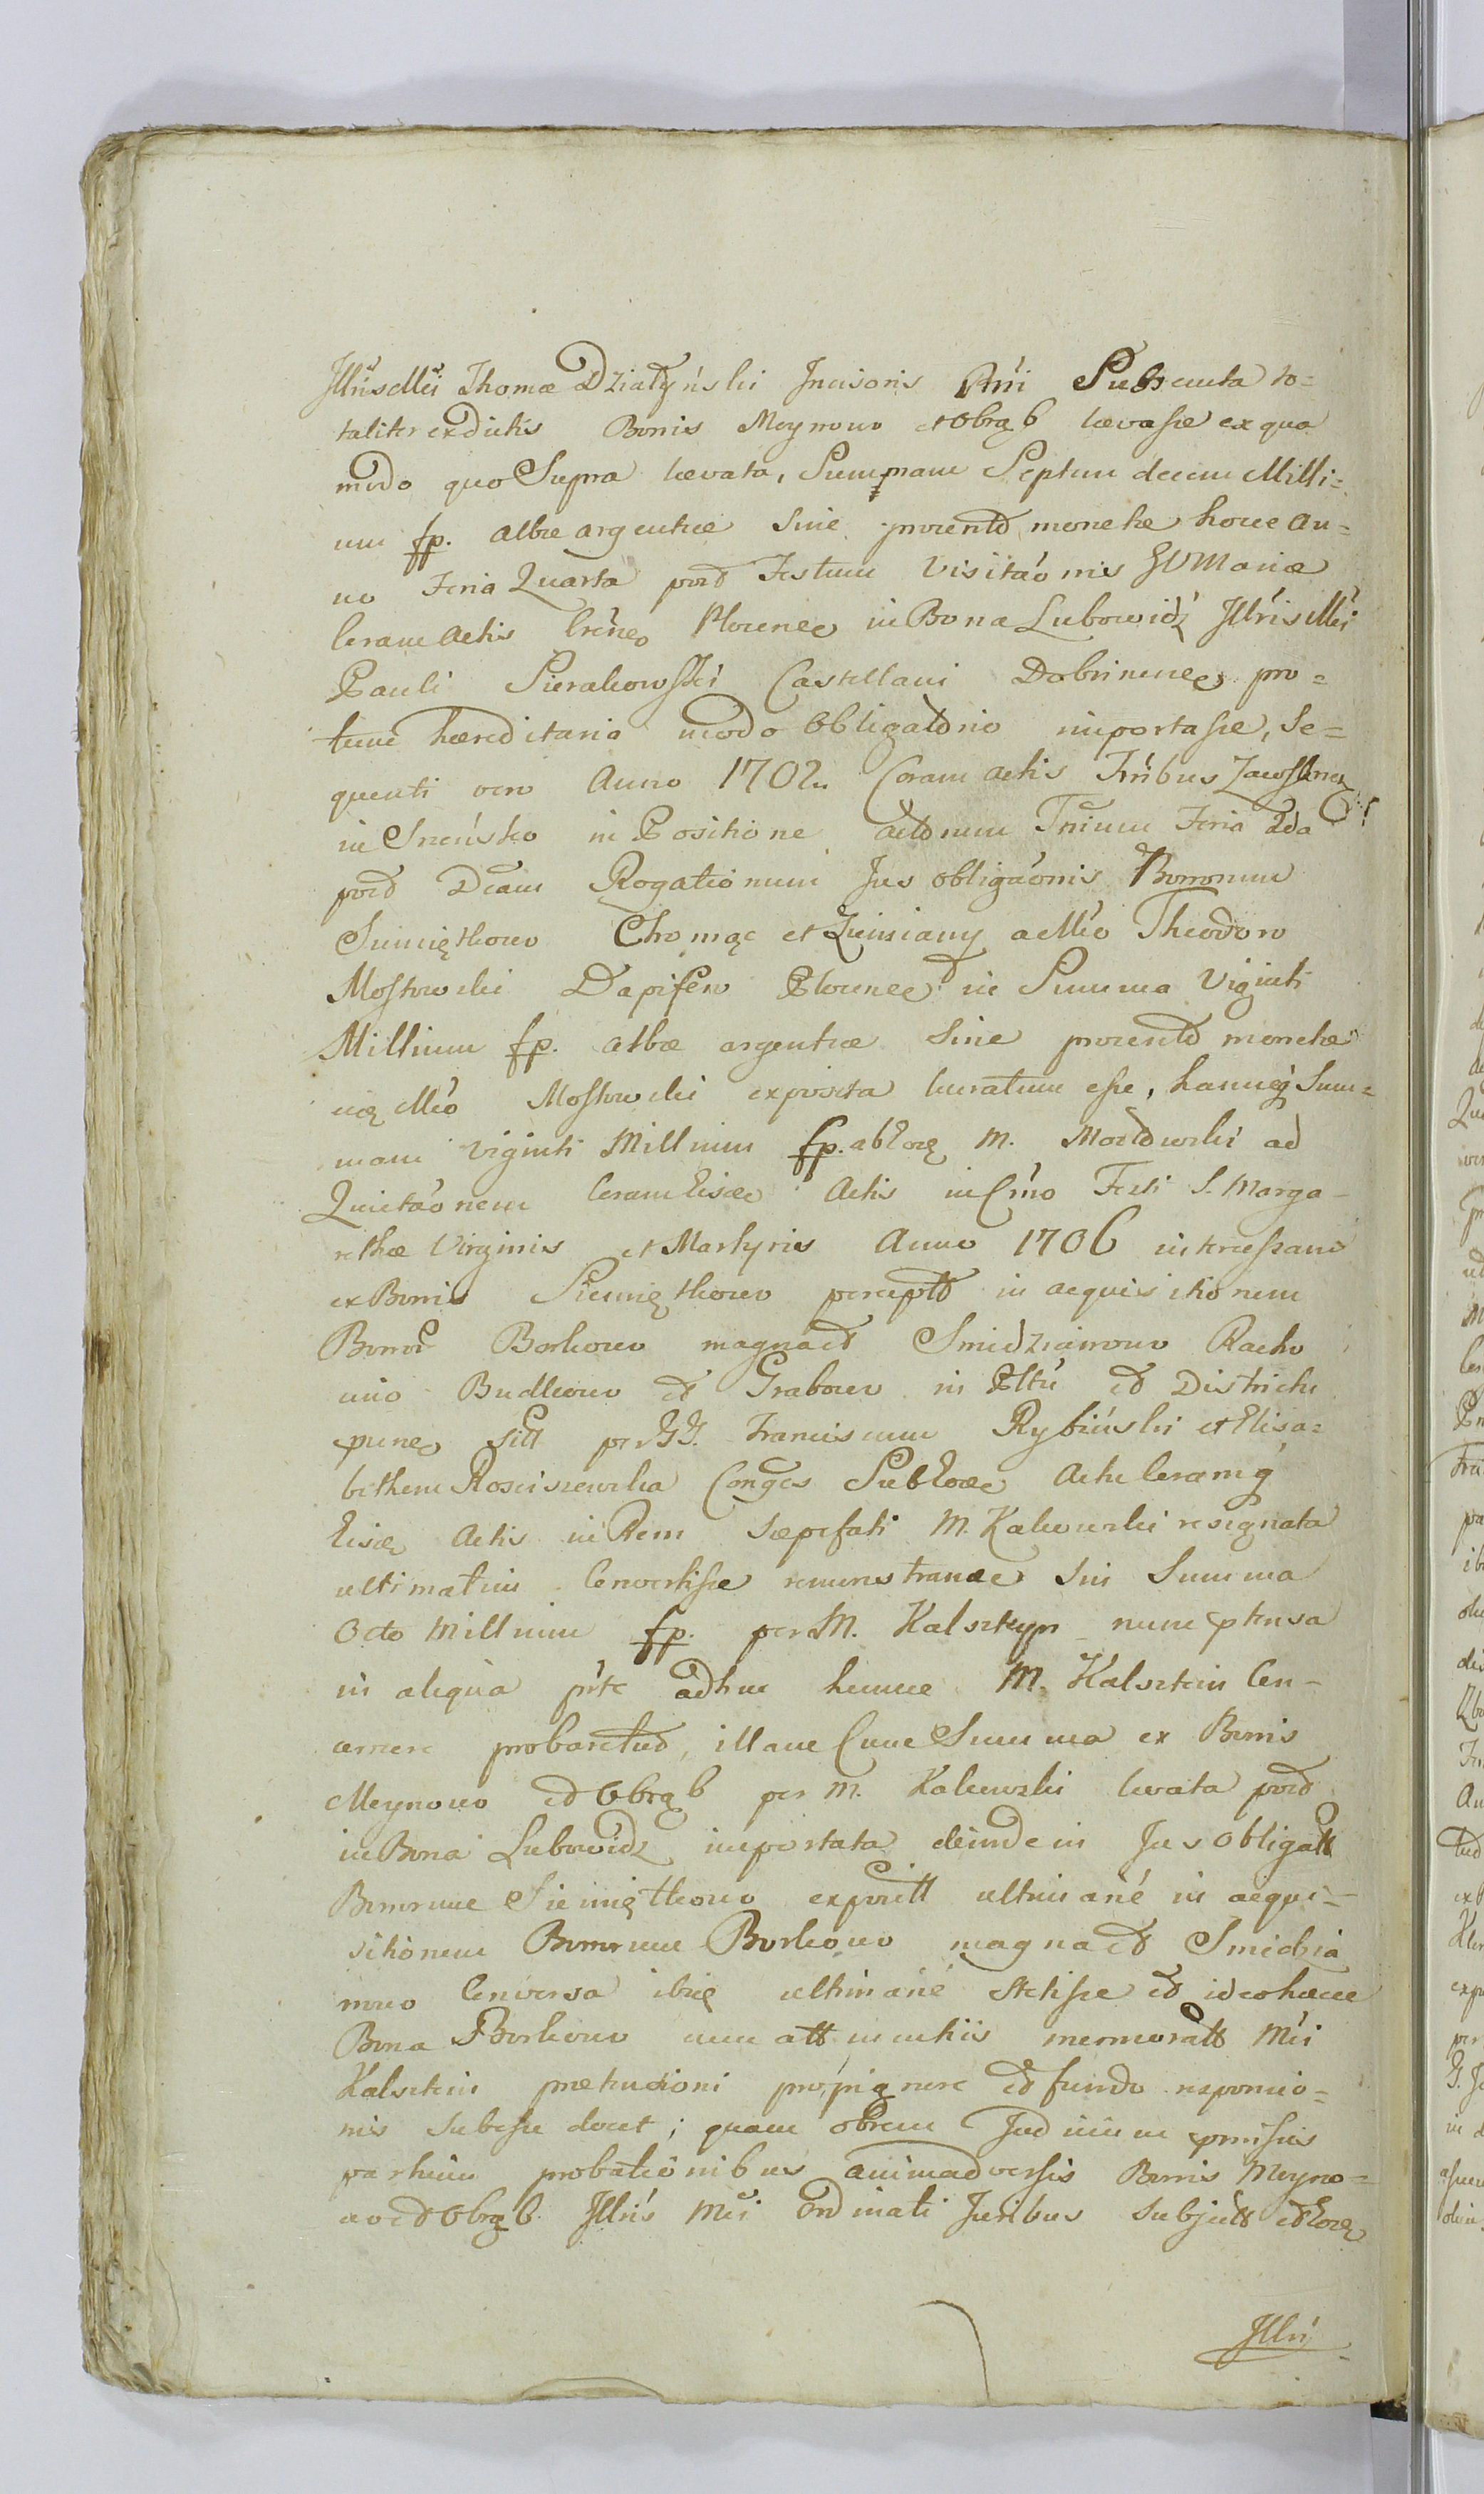 Illris Mci Thomæ Działyński Incisoris Prni Subsecuta to=
taliter ex dictis Bonis Meynowo et Obrąb levasse ex qua
modo quo Supra levata, Summam Septem decem Milli=
um fp. albæ argenteæ Sine monetæ hocce an=
no Feria Quarta post Festum Visitaõnis BVMariæ
Coram Actis in Bona Lubowidz Illris Mci
Pauli Sierakowski Castellani Dobrinen pro=
tunc hæreditaria modo Obligatorio importasse, Se=
quenti vero Anno 1702. Coram actis Tribus Zawskren
in Sreńsko in Positione actorum Feria 2da
post Dcam Rogationum Jus obligaõnis Bonorum
Siemiątkowo Chomąc et a Mco Theodoro
Mostowski Dapifero Plocnen in Summa Viginti
Millium fp. albæ argenteæ Sine monetæ
Mco Mostowski exposita esse, hancq Sum=
mam viginti Millium fp. ab M. Mostowski ad
Quietaõnem Coram Actis in Cmo Festi S. Marga-
rethæ Virginis et Martyris Anno 1706
ex Bonis Siemiątkowo in acquisitionem
Bonor Borkowo magna et Smiedzianowo Racho
wo Budkowo et Grabowo in Pltu et Districtu
per GG. Franciscum Rybiński et Elisa=
betham Rosciszewska Conges Actu Coramq
Actis in Rem sæpefati M. Kakowski resignata
ultimatim Convertisse Sin Summa
Octo Millium fp. per M. Kalszteyn nunc
in aliqua pŕte adhuc M. Kalsztein Con-
cernere probaretur, illam Cum Summa ex Bonis
Meynowo et Obrąb per M. Kakowski levata post
in Bona Lubowidz importata deinde in Jus obligatt
Bonorum Siemiątkowo exposit ultimarié in acqui=
sitionem Bonorum Borkowo magna et Smiedzia
nowo Conversa ibiq ultimarié Stetisse et ideo hæcce
Bona Borkowo cum att memoratt Mci
Kalsztein prætensioni pro pignore et fundo
nis Subesse docet; quam obrem Judicium
partium probationibus animadversis Bonis Meyno=
wo et Obrąb Illris Mci Ordinati Juribus Subject et
Illri